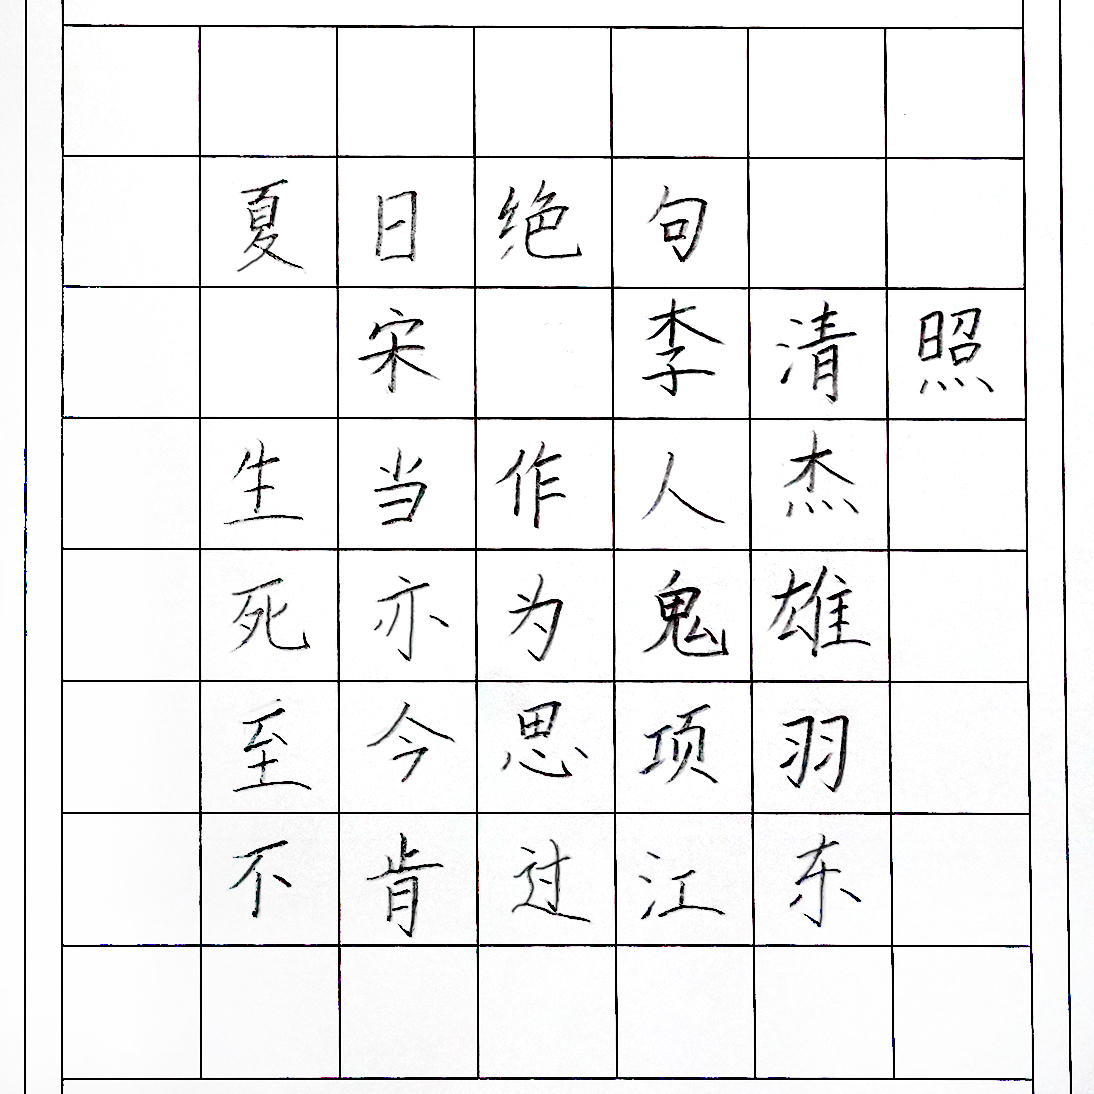 夏日绝句
宋 李清照
生当作人杰
死亦为鬼雄
至今思项羽
不肯过江东